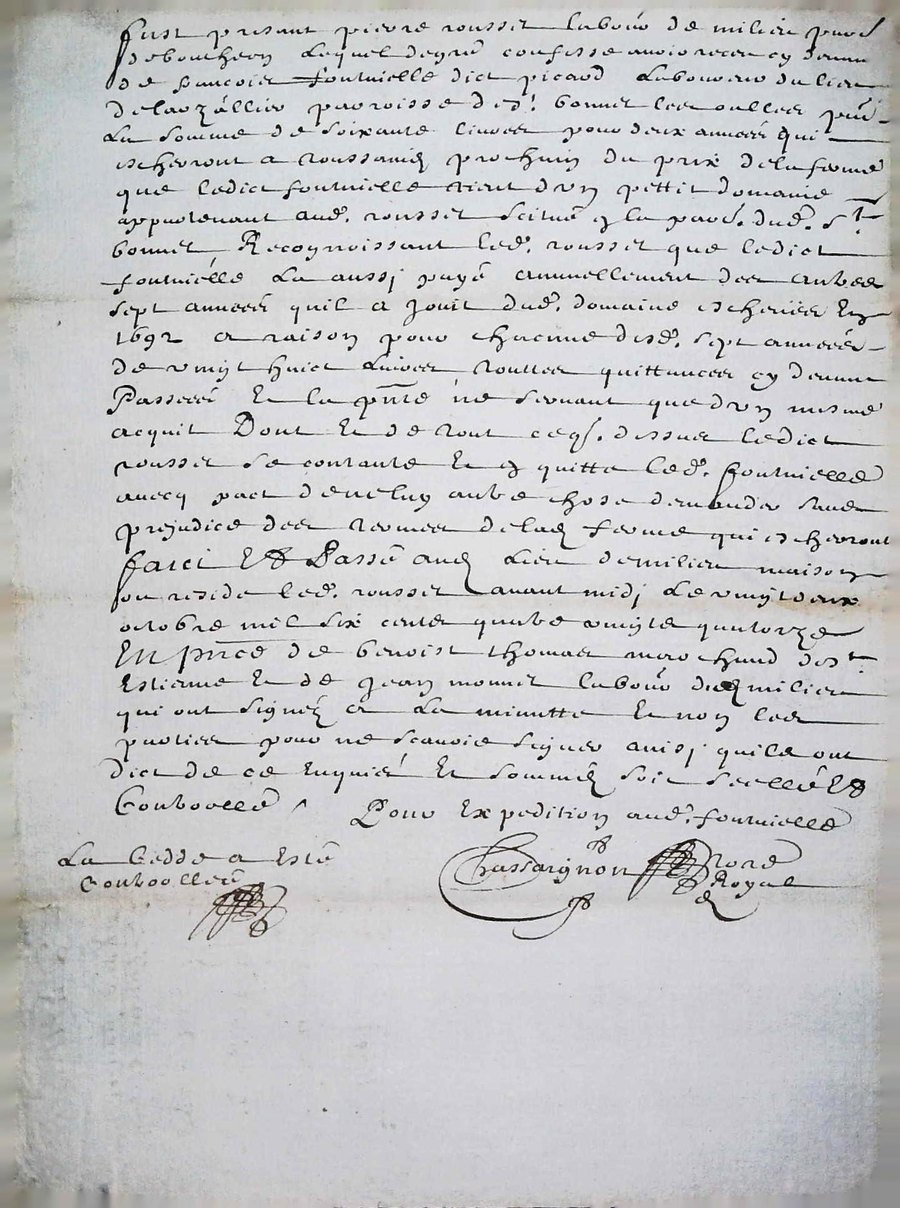 fust présant pierre rousset labour de milieu parr
de boutheon Lequel de gré confesse avoir receu cy devant
de francois fournielle dict picard Laboureur du lieu
de paroisse de st bonnet les oulles pnt
La somme de soixante livres pour deux années qui
escherront a toussainctz prochain du prix de la ferme
que ledict fournielle tient d'un pettit domaine
appartenant aud. rousset scitué en la parr. dud. St
bonnet Recognoissant led. rousset que ledict
fournielle La aussj payé annuellement des autres
sept années quil a jouit dud. domaine escheues En
1692 a raison pour chacune desd. sept années
de vingt huict Livres touttes quittances cy devant
Passées Et la pnte ne servant que d'un mesme
acquit Dont Et de tout ce q. dessus ledict
rousset se contante Et en quitte led. fournielle
avecq pact de ne luy autre chose demander sans
prejudice des termes de lad ferme qui escherront
faict Et Passé aud Lieu de milieu maison
ou reside led. rousset avant midj Le vingt deux
octobre mil six cents quatre vingts quatorze
En pnce de benoist thomas marchand de st
Estienne Et de jean monnet labour dud milieu
qui ont signéz a La minutte Et non les
parties pour ne scavoir signer ainsj quils ont
dict de ce Enquis Et sommés soit scellé Et
Controollé Pour Expedition aud. fournielle
La cedde a Esté
Controollée
Chassaignon nore
Royal